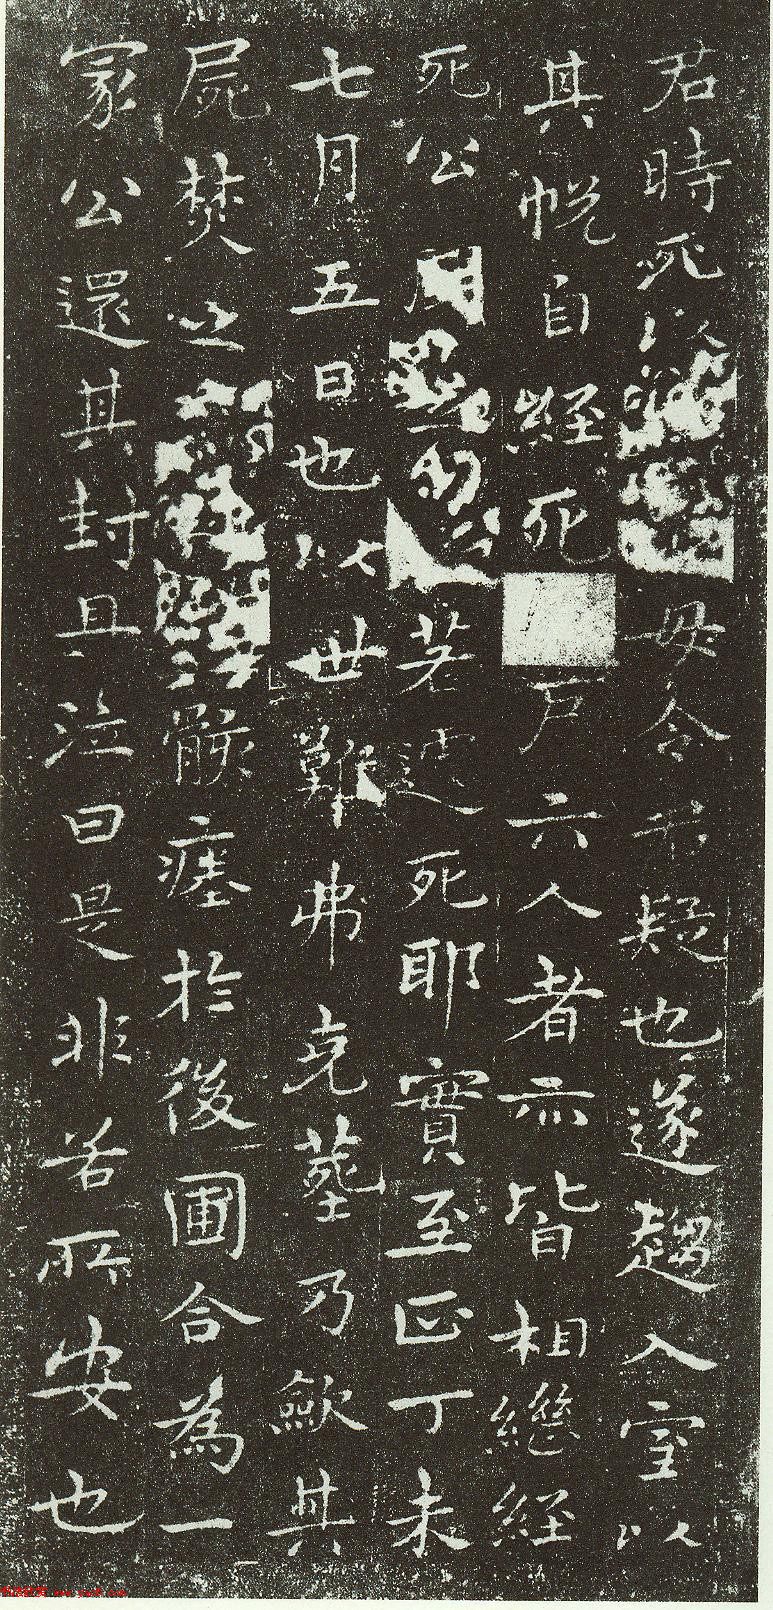 君時死以毋令君疑也遂趨入室以
其帨自經死戶六人者亦皆相繼經
死公若遽死耶實至正丁未
七月五日也以世難弗克塟乃歛其
屍焚之骸瘞於後圃合為一
冢公還其封且泣曰是非若所安也